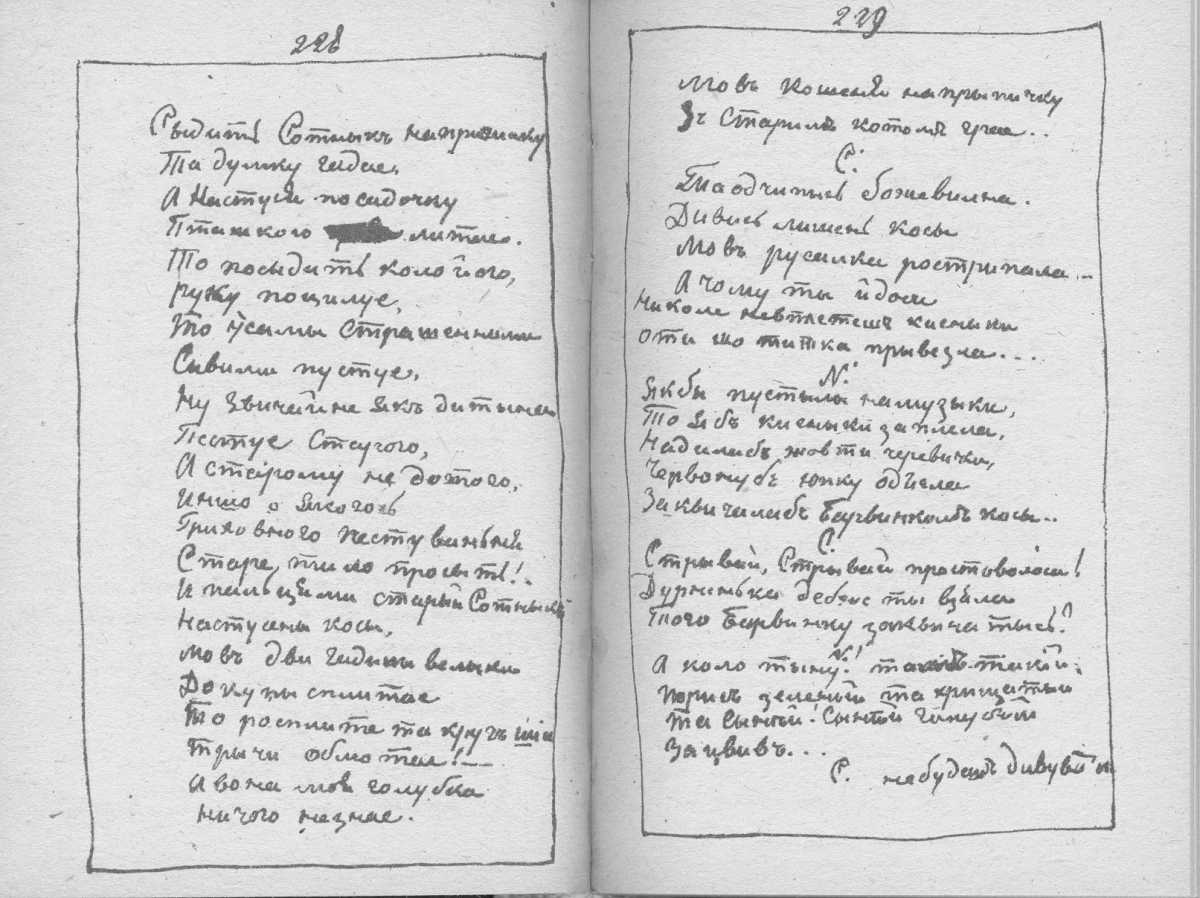 228
Сыдить Сотныкъ на прызьбу
Та думку гадае,
А Настуся по садочку
Пташкою литае.
То посыдить коло його,
руку поцилуе,
То усамы страшенными
Сивими пустуе,
Ну звичайне якъ дитына
Пестуе старого,
А старому не до того,
Иншо о якогось
Гриховного пестування
Старе тило просыть!
И пальцями старый Сотныкъ
Настусины косы,
мовъ дви гадыны велыки
До купы сплитае
То росплите та кругъ шыи
Тричи обмотае!—
А вона мов голубка
ничого не знае.
229
Мовъ кошеня на прыпичку
Зъ старимъ котомъ грае..
С:
Та одчипысь божевилна.
Дивись лишень косы
Мовъ русалка рострипала..
А чому ты йдоси
николи невплетешъ кисныки
оти що титка прывезла...
N:
Якбы пустылы на музыки,
То ябъ кисныки заплела,
Надилабъ жовти черевички,
Червонубъ юпку одiела
Заквичалабъ барвинкомъ косы..
С:
Стрывай, Стрывай простоволоса!
Дурненька дебже ты взяла
Того барвинку заквичатысь?
N:
А коло тыну! такий
порисъ зеленый та хрищатый
та Сыний! Сыний голубый
Зацвивъ...
С. не будешъ дивуват